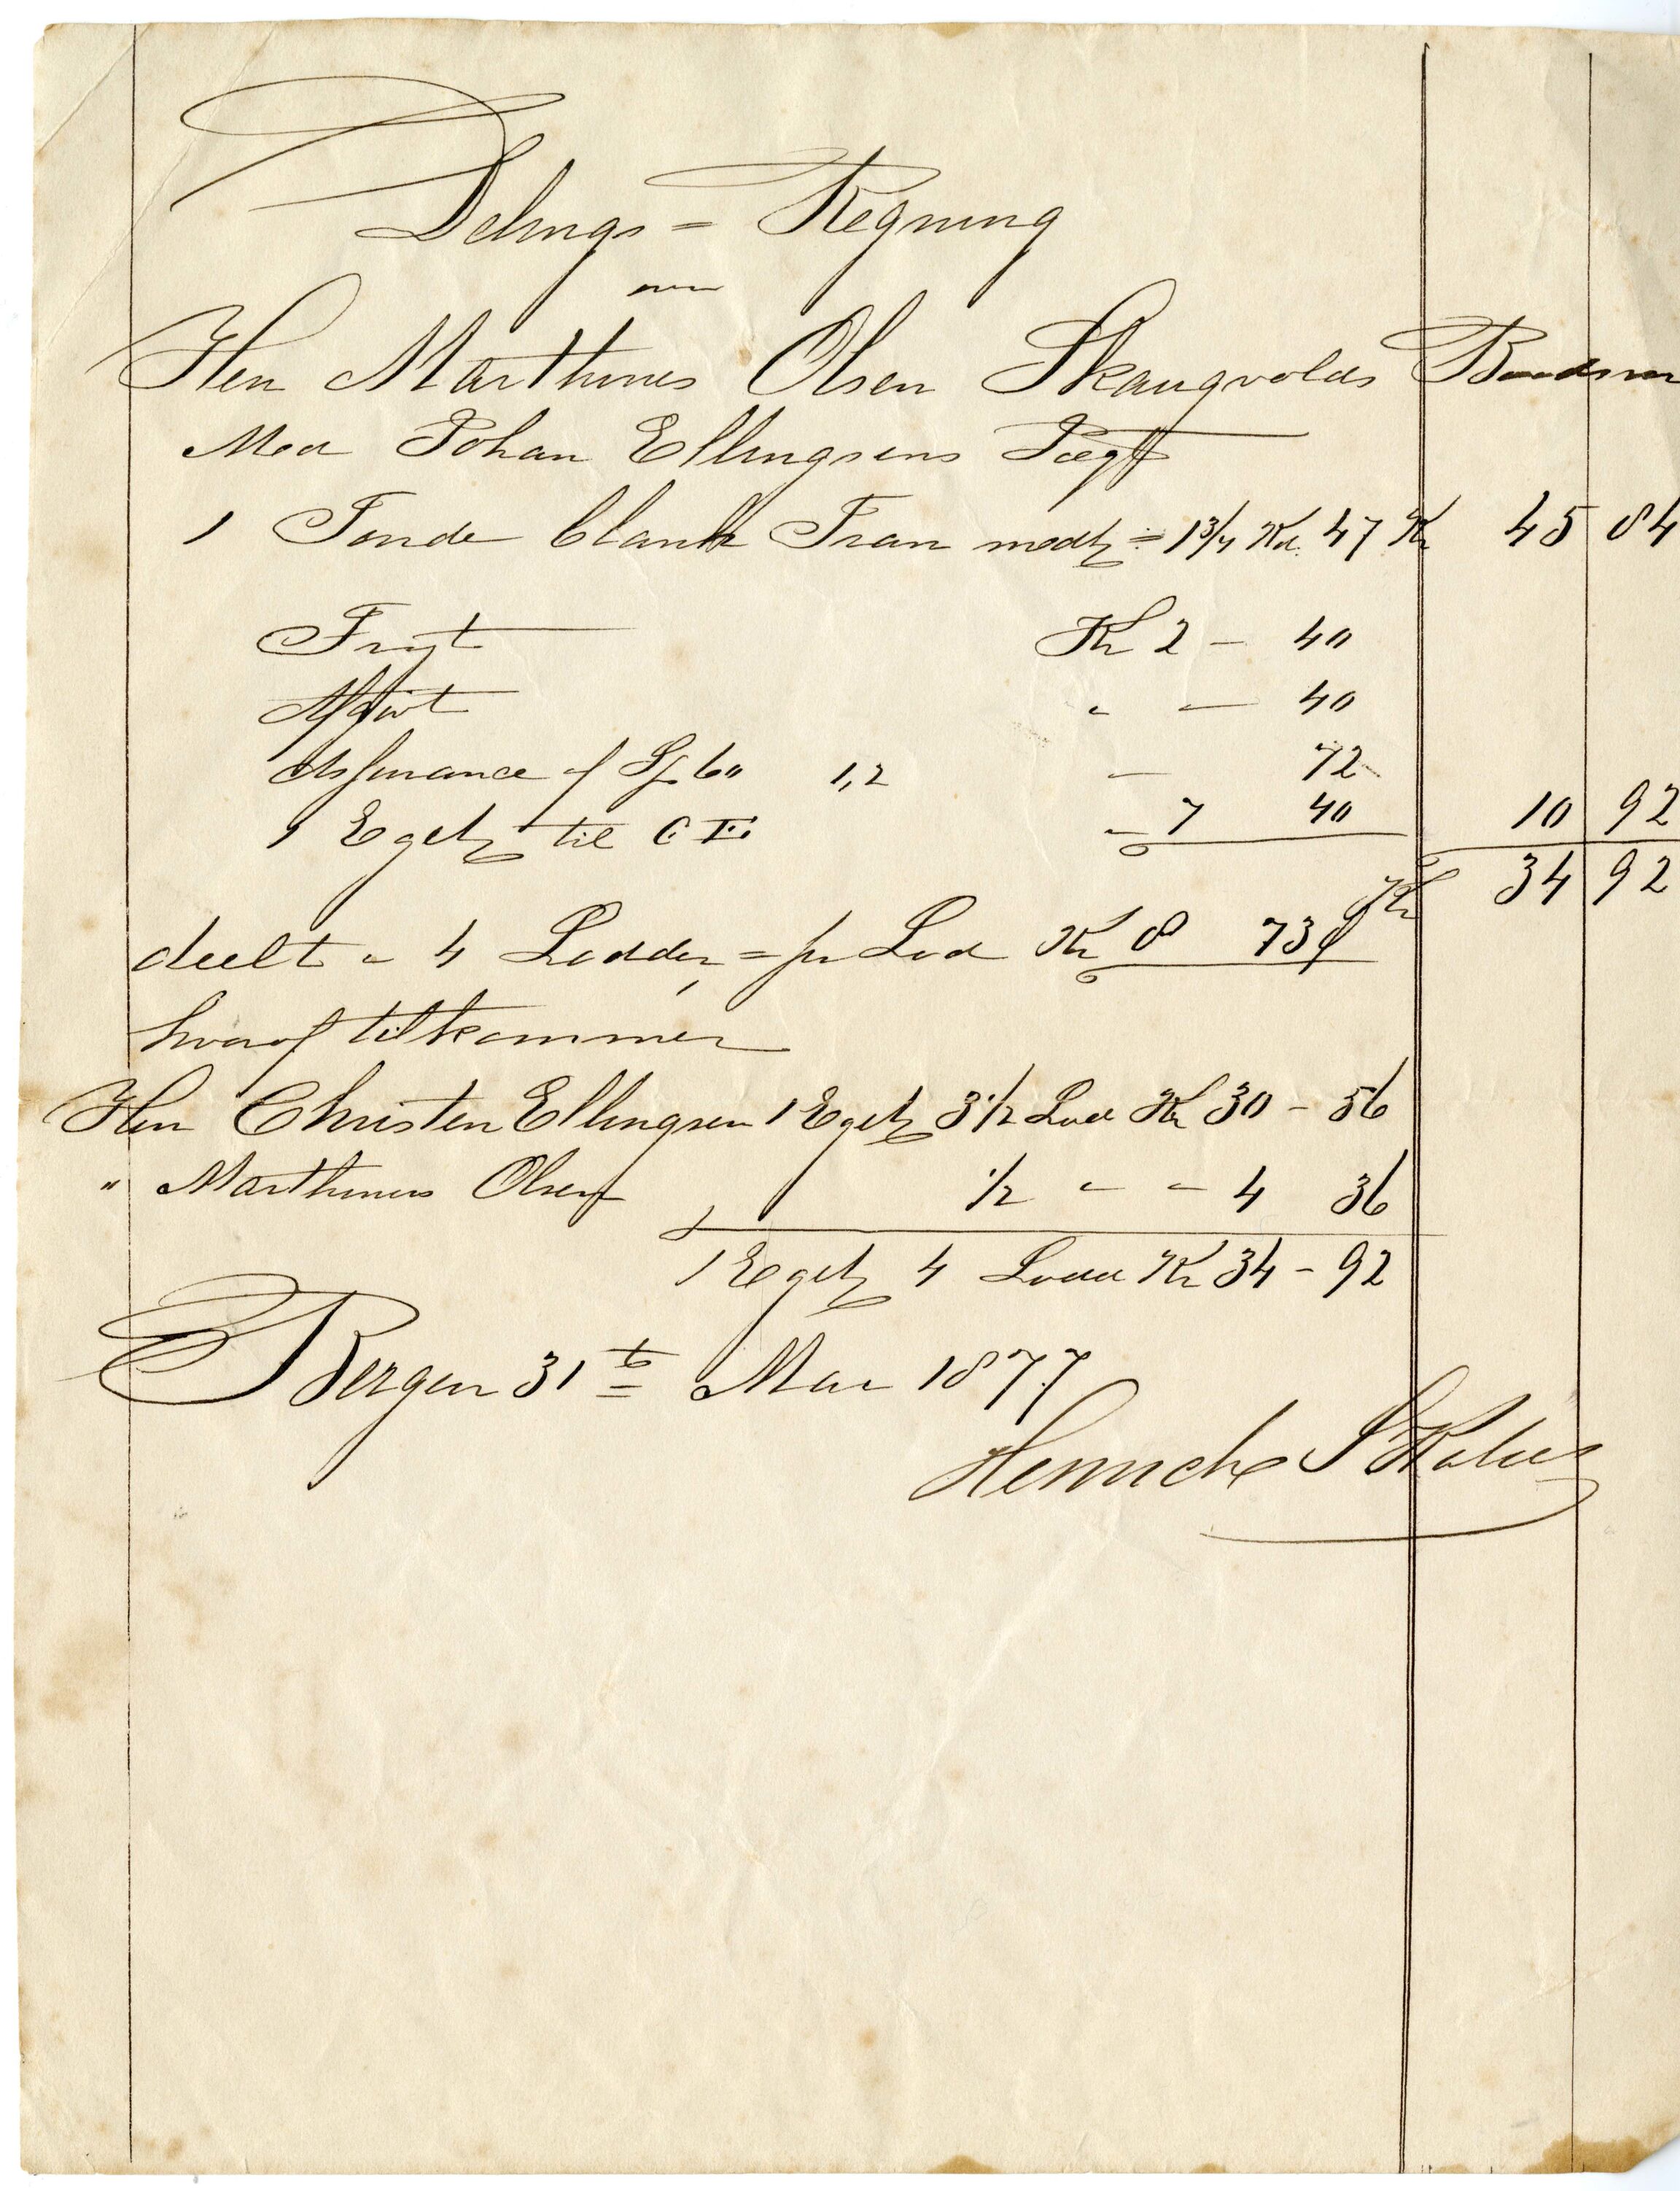 Delings = Regning
over
Herr Marthinus Olsen Skaugvolds
Med Johan Ellingsens Jægt
1 Tønde blank Tran = 1 3/4 Kd. 47 Kr 45 84
Fragt Kr 2 – 40
Afgivt " — 40
Assurance af 60 1,2 — 72
1 Egetz til C. E. " 7 40 10 92
Kr 34 92
deelt a 4 Lodder = pr Lod Kr 8 73
hvoraf tilkommer
Herr Christen Ellingsen 1 Egetz 3 1/2 Lodd Kr 30 – 56
" Marthinus Olsen 1/2 " " 4 36
1 Egetz 4 Lodd Kr 34 – 92
Bergen 31te Mai 1877